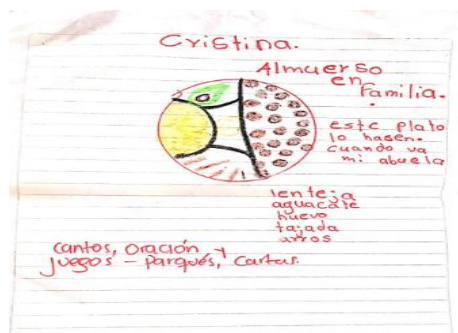 Cristina.
Almuerso
en
Familia.
este plato
lo hasen.
cuando va
mi abuela
lenteja
aguacate
huevo
tajada
arros
cantos, oración y
juegos - Parqués, cartas.